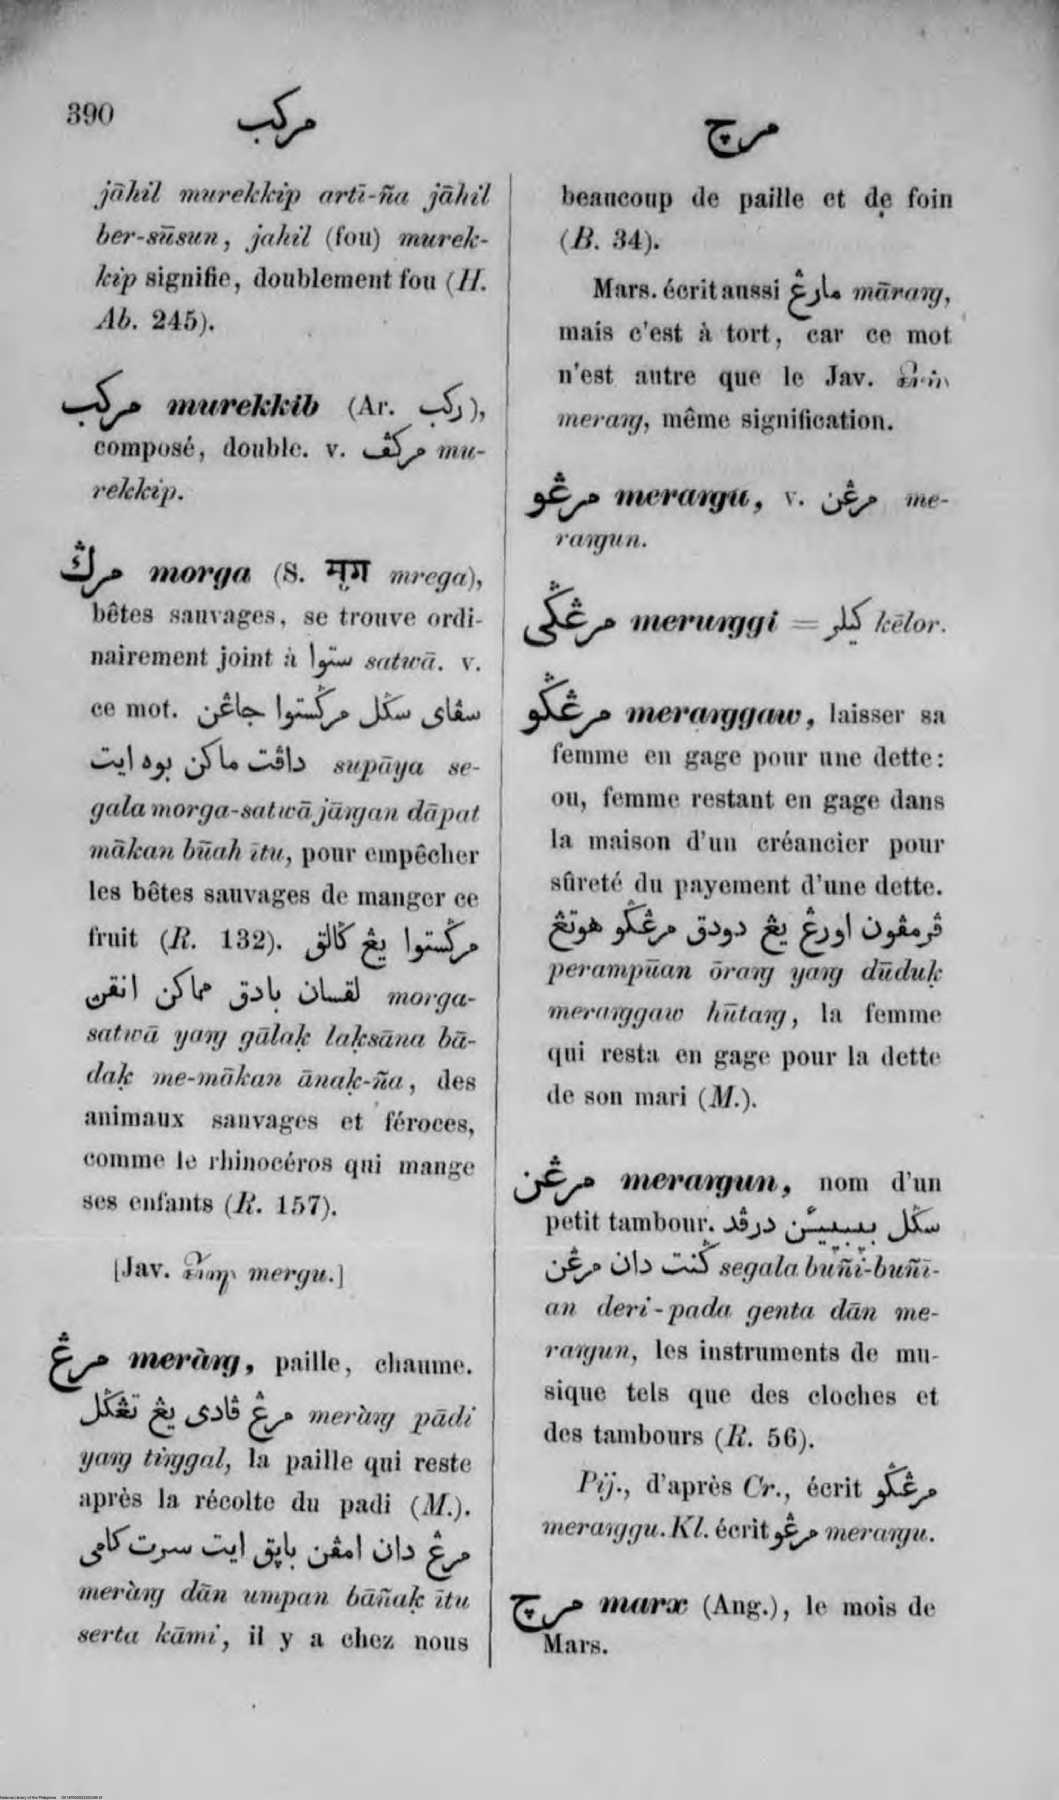 390
مركب
مرچ
jāhil murekkip artī-ña jāhil
ber-sūsun, jahil (fou) murek-
kip signifie, doublement fou (H.
Ab. 245).
مركب murekkib (Ar. ركب),
composé, double. v. مركڤ mu-
rekkip.
مرݢ morga (S. मृग mrega),
bêtes sauvages, se trouve ordi-
nairement joint à ستوا satwā. v.
ce mot. سڤاى سݢل مرݢستوا جاڠن
داڤت ماكن بوه ايت supāya se-
gala morga-satwā jāꞑgan dāpat
mākan būah ītu, pour empêcher
les bêtes sauvages de manger ce
fruit (R. 132). مرݢستوا يڠ ݢالق
لقسان بادق مماكن انقن morga-
satwā yaꞑg gālaḳ laḳsāna bā-
daḳ me-mākan ānaḳ-ña, des
animaux sauvages et féroces,
comme le rhinocéros qui mange
ses enfants (R. 157).
[Jav. mergu.]
مرڠ meràꞑg, paille, chaume.
مرڠ ڤادى يڠ تڠݢل meràꞑg pādi
yaꞑg tiꞑggal, la paille qui reste
après la récolte du padi (M.).
مرڠ دان امڤن باڽق ايت سرت كامى
meràꞑg dān umpan bāñaḳ ītu
serta kāmi, il y a chez nous
beaucoup de paille et de foin
(B. 34).
Mars. écrit aussi مارڠ māraꞑg,
mais c'est à tort, car ce mot
n'est autre que le Jav.
meraꞑg, même signification.
مرڠو meraꞑgu, v. مرڠن me-
raꞑgun.
مرڠݢى meruꞑggi = كيلر kēlor.
مرڠݢو meraꞑggaw, laisser sa
femme en gage pour une dette:
ou, femme restant en gage dans
la maison d'un créancier pour
sûreté du payement d'une dette.
ڤرمڤون اورڠ يڠ دودق مرڠݢو هوتڠ
perampūan ōraꞑg yaꞑg dūduḳ
meraꞑggaw hūtaꞑg, la femme
qui resta en gage pour la dette
de son mari (M.).
مرڠن meraꞑgun, nom d'un
petit tambour. سݢل درڤد
ݢنت دان مرڠن segala buñi-buñī-
an deri-pada genta dān me-
raꞑgun, les instruments de mu-
sique tels que des cloches et
des tambours (R. 56).
Pij., d'après Cr., écrit مرڠݢو
meraꞑggu. Kl. écrit مرڠو meraꞑgu.
مرچ marx (Ang.), le mois de
Mars.